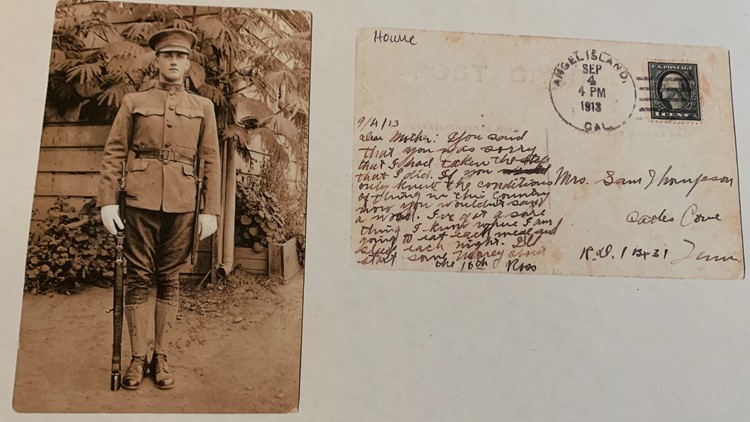 Howe
ANGEL ISLAND,
SEP
4
4 PM
1913
CAL.
U.S. POSTAGE
1 CENT 1
9/4/13
Dear Mother: You said
that you was sorry
that I had taken the step
that I did. If you
only knew the conditions
of things in this Country
now you wouldn't say
a word. I've got a sure
thing I know where I am
going to eat each meal and
sleep each night. I'll
start some money about
the 16th Ross
Mrs. Sam Thompson
Cades Cove
R.D. 1 Bx 31 Tenn